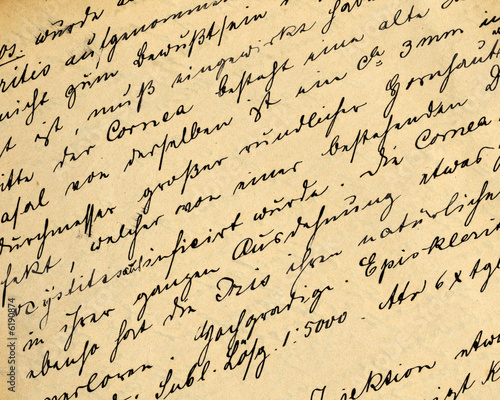 os. wurde a
ritis aufgenommen
nicht zum Bewußtsein
t ist, muß eingewirkt hab
itte der Cornea besteht eine alte
asal von derselben ist ein ca 3 mm i
durchmesser großer rundlicher Hornhaut
fekt, welcher von einer bestehenden D
ocystitis aus inficirt wurde. Die Cornea
in ihrer ganzen Ausdehnung etwas
ebenso hat die Iris ihren natürliche
verloren. Hochgradige Episklerit
Subl. Lösg. 1:5000. Atr 6 x tgl
Injektion etwa